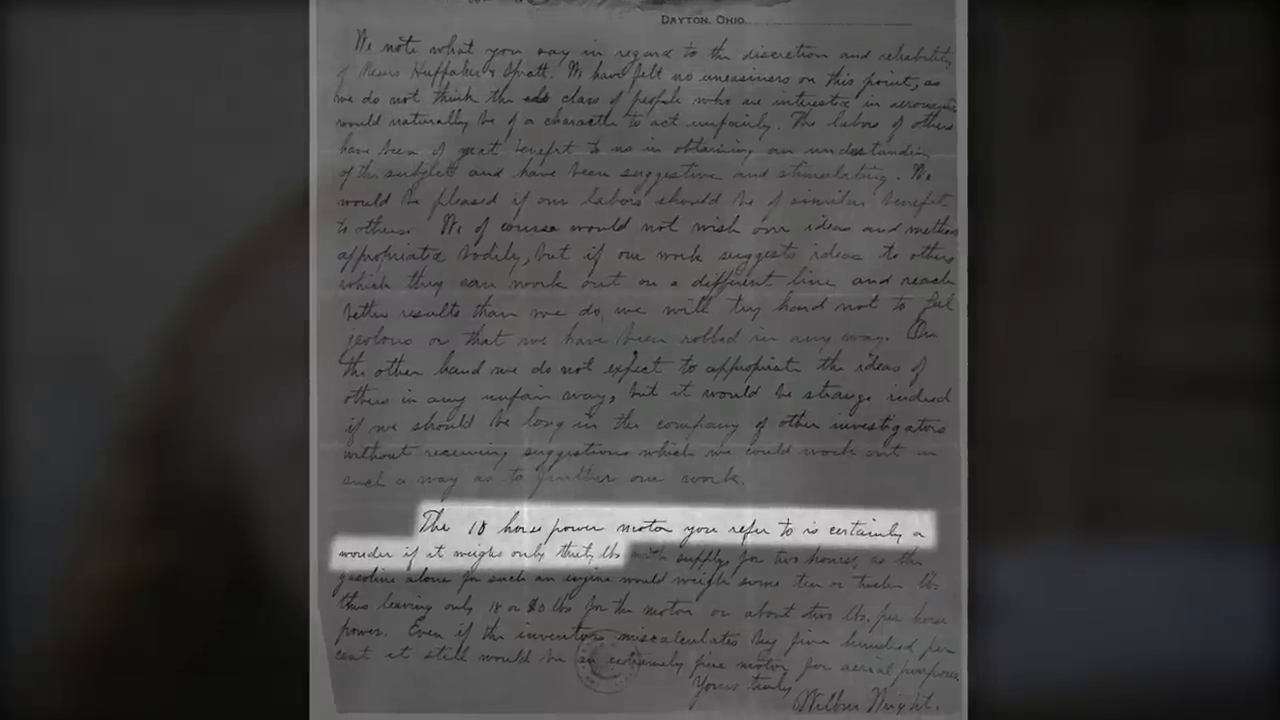 DAYTON, OHIO.
We note what you say in regard to the discretion and reliability
of Messrs Huffaker & Spratt. We have felt no uneasiness on this point, as
we do not think the class of people who are interested in aeronautics
would naturally be of a character to act unfairly. The labors of others
have been of great benefit to us in obtaining an understanding
of the subject and have been suggestive and stimulating. We
would be pleased if our labors should be of similar benefit
to others. We of course would not wish our ideas and methods
appropriated bodily, but if our work suggests ideas to others
which they can work out on a different line and reach
better results than we do, we will try hard not to feel
jealous or that we have been robbed in any way. On
the other hand we do not expect to appropriate the ideas of
others in any unfair way, but it would be strange indeed
if we should be long in the company of other investigators
without receiving suggestions which we could work out in
such a way as to further our work.
The 10 horse power motor you refer to is certainly a
wonder if it weighs only thirty lbs with supply for two hours, as the
gasoline alone for such an engine would weigh some ten or twelve lbs
thus leaving only 18 or 20 lbs for the motor or about two lbs. per horse
power. Even if the inventor miscalculates by five hundred per
cent it still would be an extremely fine motor for aerial purposes.
Yours truly
Wilbur Wright.